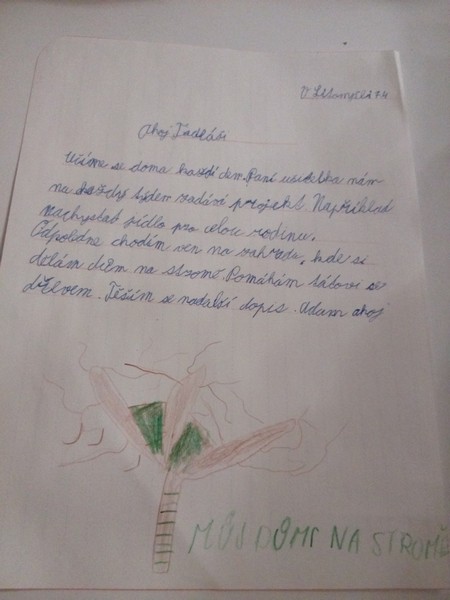 V Litomyšli 7.4
Ahoj
Učíme se doma každí den. Paní učitelka nám
na každý týden zadává projekt. Například
nachystat jídlo pro celou rodinu.
Odpoldne chodím ven na zahradu, kde si
dělám dům na stromě. Pomáhám tátovi se
dřevem. Těším se nadalší dopis. Adam ahoj
MŮJ DOMI NA STROMĚ